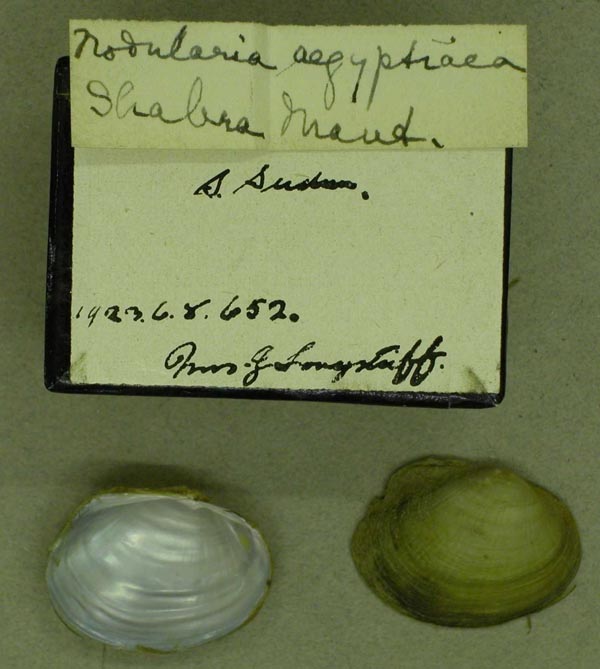 Nodularia aegyptiaca
S. Sudan.
1923.6.8.652.
Mrs. J Longstaff.